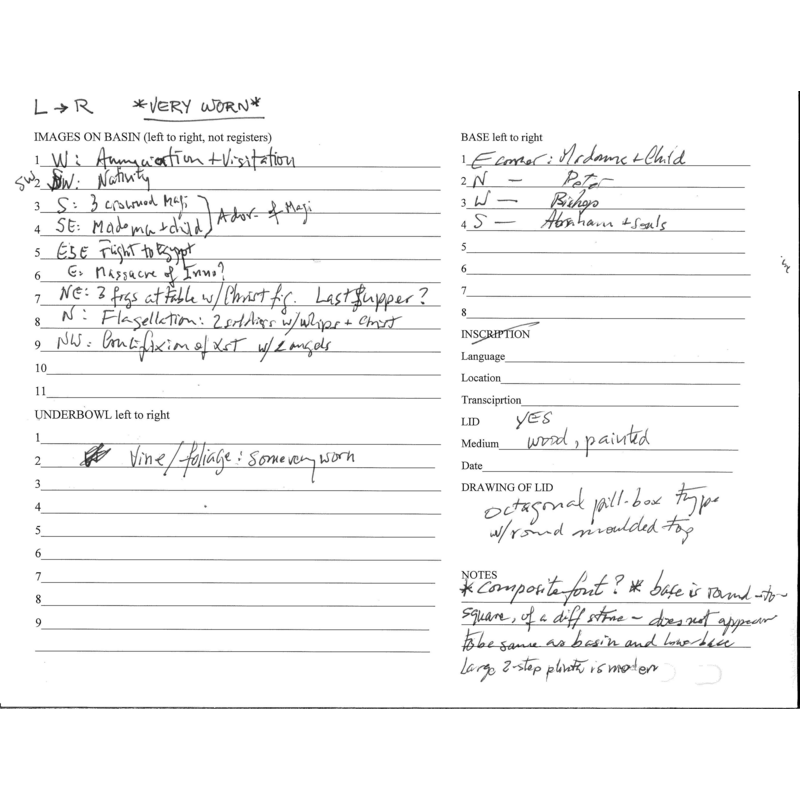 L → R *VERY WORN*
IMAGES ON BASIN (left to right, not registers)
1 W: Annunciation + Visitation
SW 2 SW: Nativity
3 S: 3 crowned Magi
4 SE: Madonna + child } Ador. of Magi
5 ESE Flight to Egypt
6 E: Massacre of Inno?
7 NE: 3 figs at table w/ Christ fig. Last Supper?
8 N: Flagellation: 2 soldiers w/ whips + Christ
9 NW: Crucifixion of Xst w/ 2 angels
10
11
UNDERBOWL left to right
1
2 Vine/foliage: some very worn
3
4
5
6
7
8
9
BASE left to right
1 E corner: Madonna + Child
2 N — Peter
3 W — Bishop
4 S — Abraham + souls
5
6
7
8
INSCRIPTION
Language
Location
Transciprtion
LID YES
Medium wood, painted
Date
DRAWING OF LID
octagonal pill-box type
w/ round moulded top
NOTES
*Composite font? * base is round-to-
square, of a diff stone – does not appear
to be same as basin and lower base
Large 2-step plinth is modern